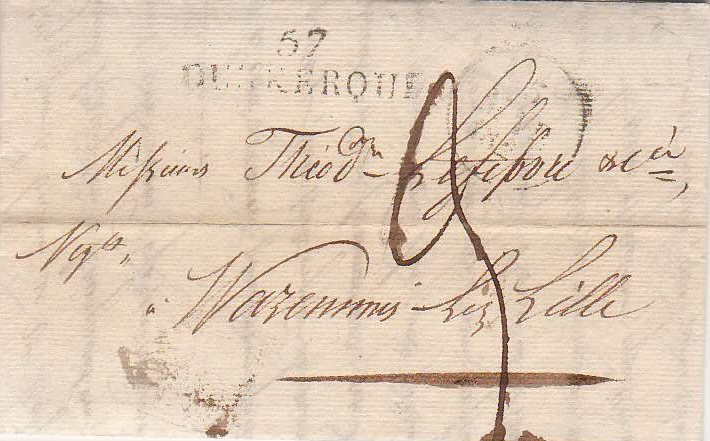 57
DUNKERQUE
Messieurs Théod.re Lefebvre & C.ie,
Neg.ts,
à Wazemmes-Lez-Lille